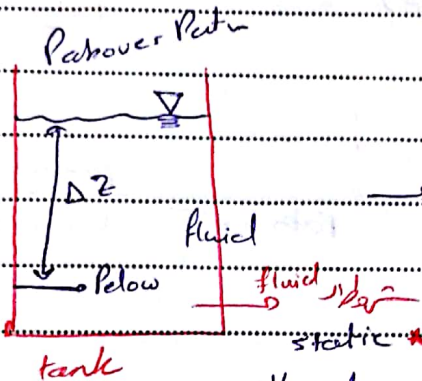 Pabove = Patm
ΔZ
fluid
Pbelow
fluid
static
tank